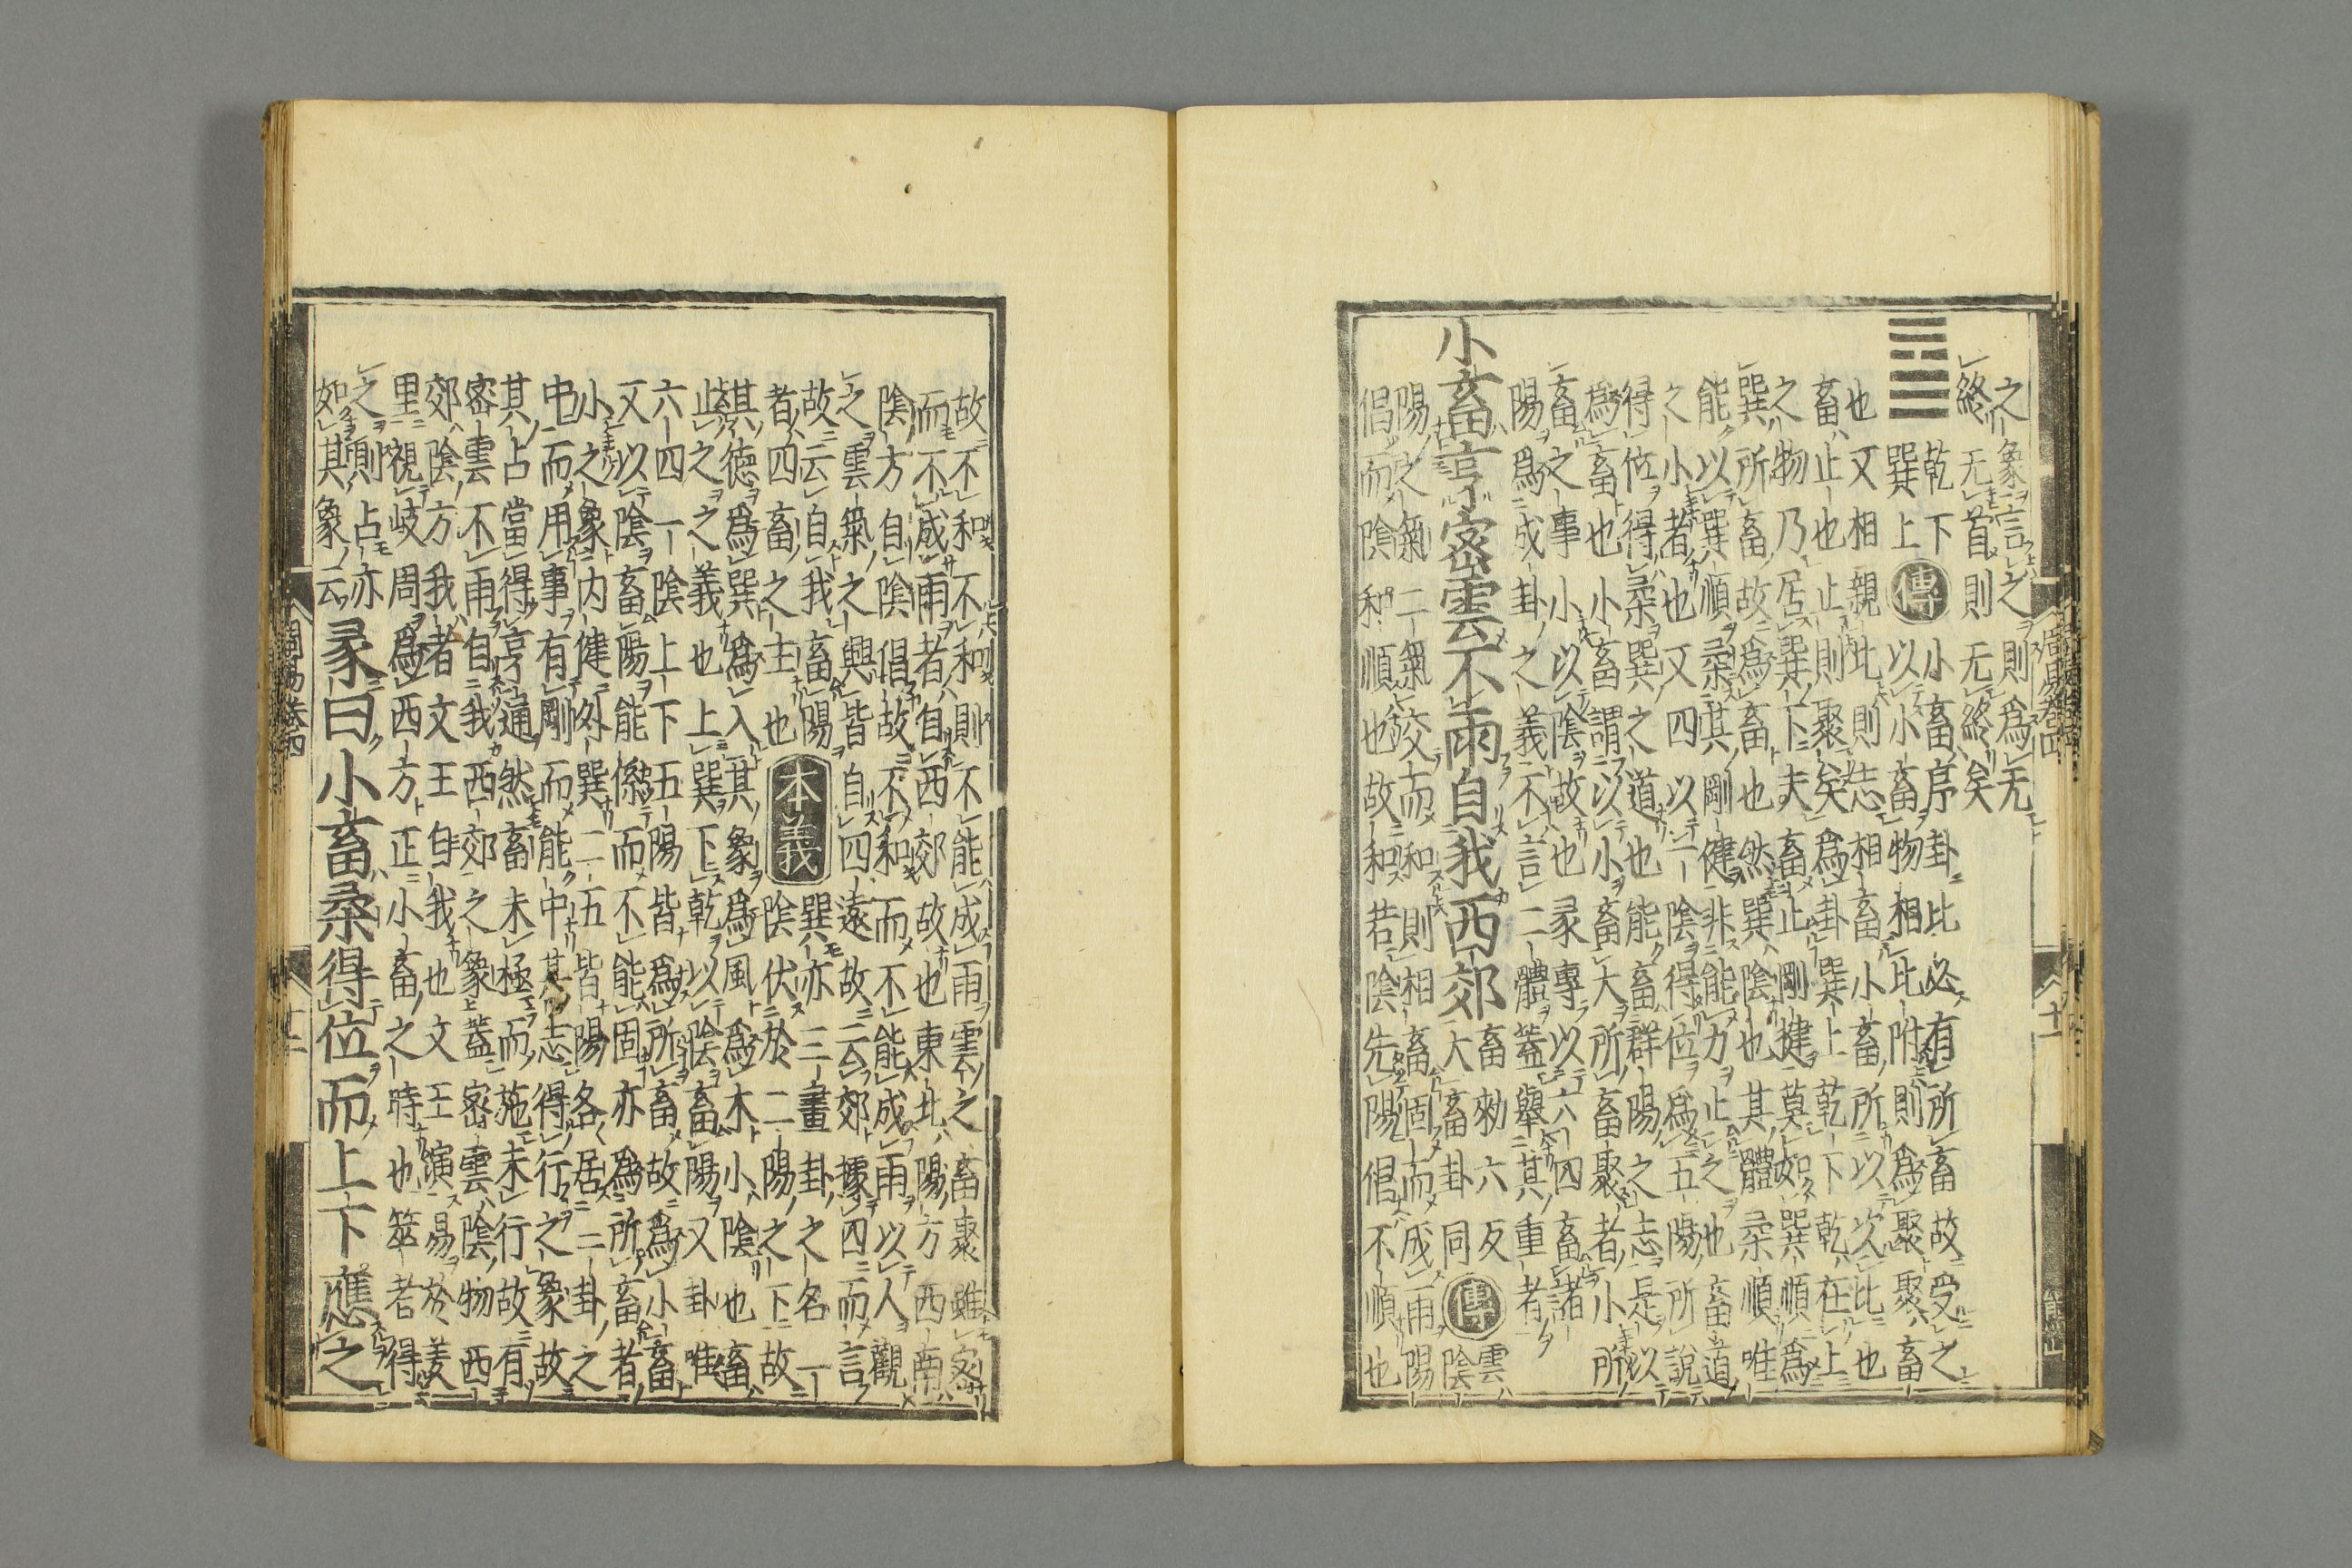 之象言之則爲无
終无首則无終矣
䷈
乾下
巽上
傳
小畜序卦比必有所畜故受之
以小畜物相比附則爲聚聚畜
也又相親比則志相畜小畜所以次比也
畜止也止則聚矣爲卦巽上乾下乾在上
之物乃居巽下夫畜止剛揵莫如巽順爲
巽所畜故爲畜也然巽陰也其體柔順唯
能以巽順柔其剛健非能力止之也畜道
之小者也又四以一陰得位爲五陽所說
得位得柔巽之道也能畜群陽之志是以
爲畜也小畜謂以小畜大所畜聚者小所
畜之事小以陰故也彖專以六四畜諸
陽爲成卦之義不言二體蓋舉其重者
小畜亨密雲不雨自我西郊
畜勑六反
大畜卦同
傳
雲
陰
陽之氣二氣交而和則相畜固而成雨陽
倡而陰和順也故和若陰先陽倡不順也
周易卷四
十一
故不和不和則不能成雨雲之畜聚雖密
而不成雨者自西郊故也東北陽方西南
陰方自陰倡故不和而不能成雨以人觀
之雲氣之興皆自四遠故云郊據四而言
故云自我畜陽
者四畜之主也
本義
巽亦三畫卦之名一
陰伏於二陽之下故
其德爲巽爲入其象爲風爲木小陰也畜
止之之義也上巽下乾以陰畜陽又卦唯
六四一陰上下五陽皆爲所畜故爲小畜
又以陰畜陽能係而不能固亦爲所畜者
小之象内健外巽二五皆陽各居一卦之
中而用事有剛而能中其志得行之象故
其占當得亨通然畜未極而施未行故有
密雲不雨自我西郊之象蓋密雲陰物西
郊陰方我者文王自我也文王演易於羑
里視岐周爲西方正小畜之時也筮者得
之則占亦
如其象云
彖曰小畜柔得位而上下應之
周易卷四
十二